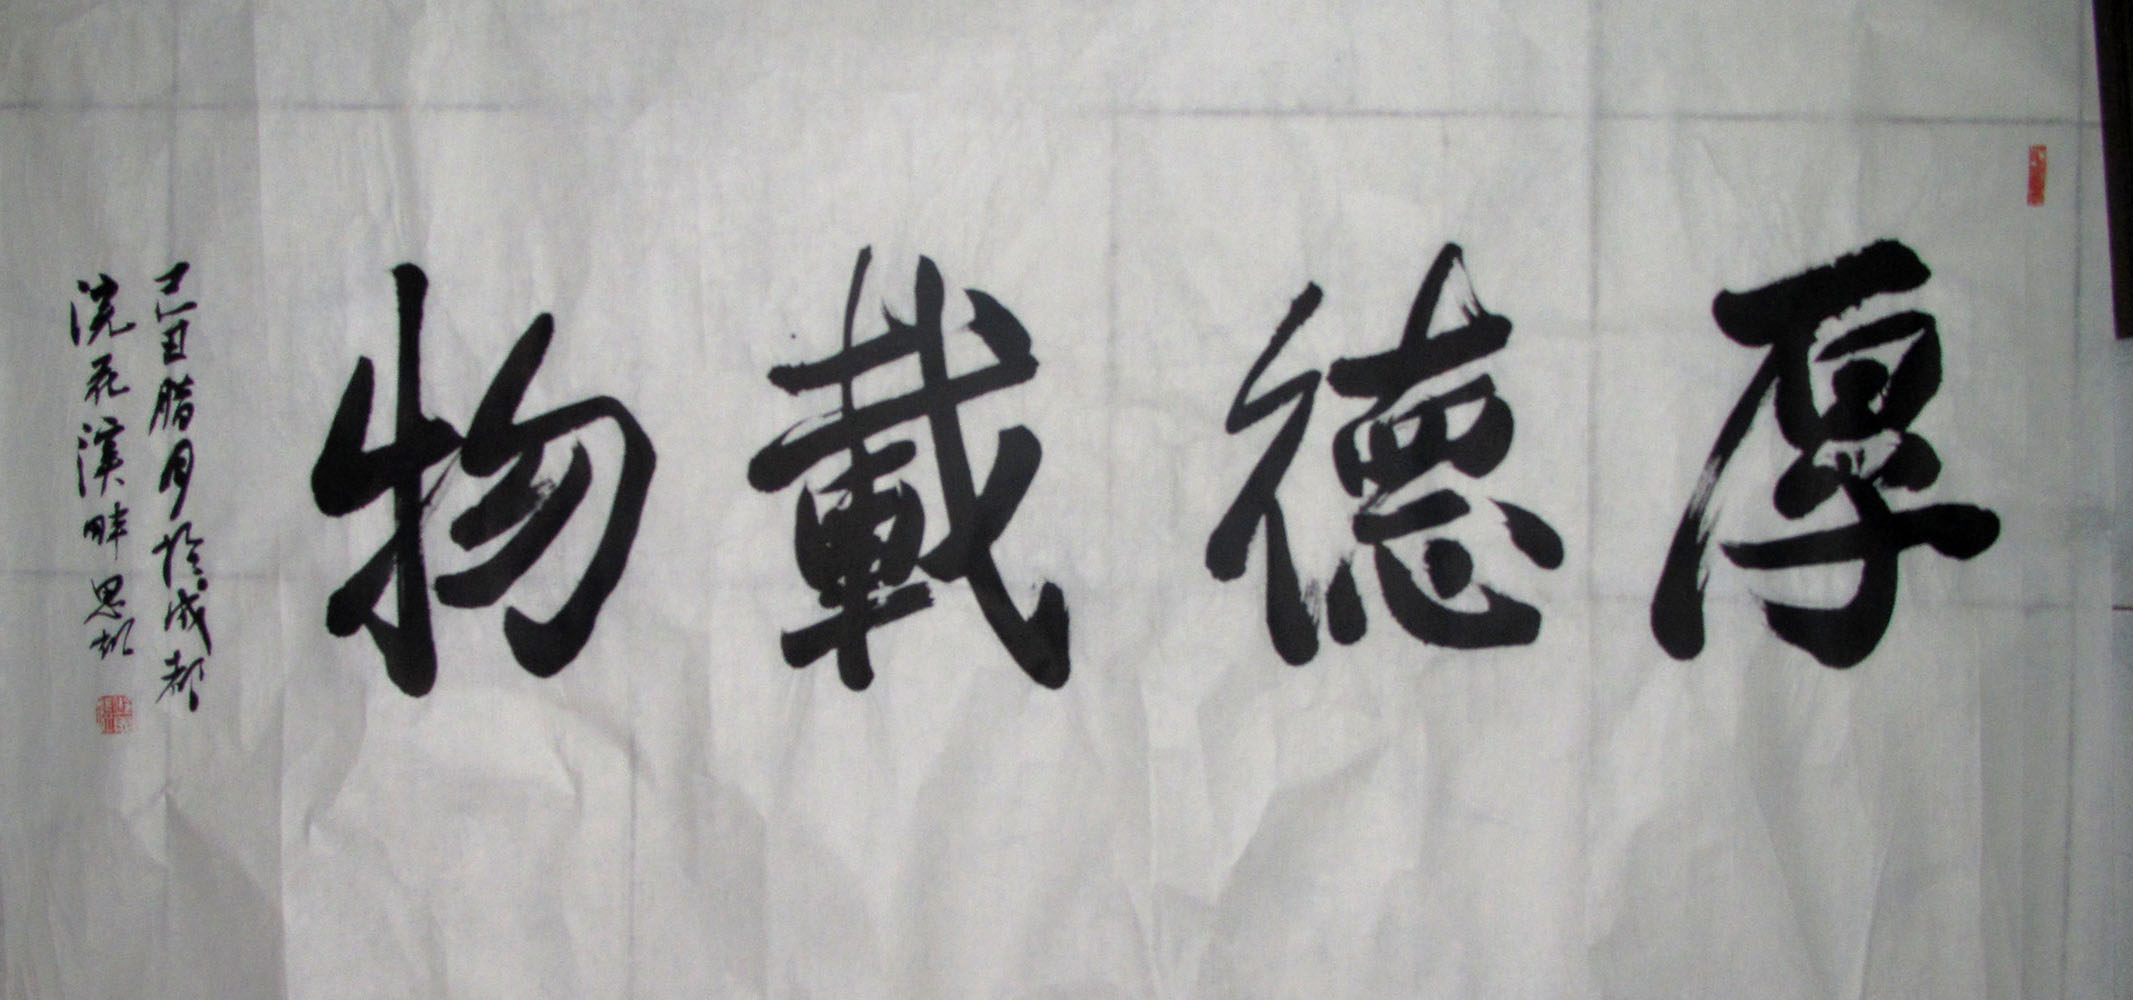 厚德載物
己丑腊月於成都
浣花溪畔思